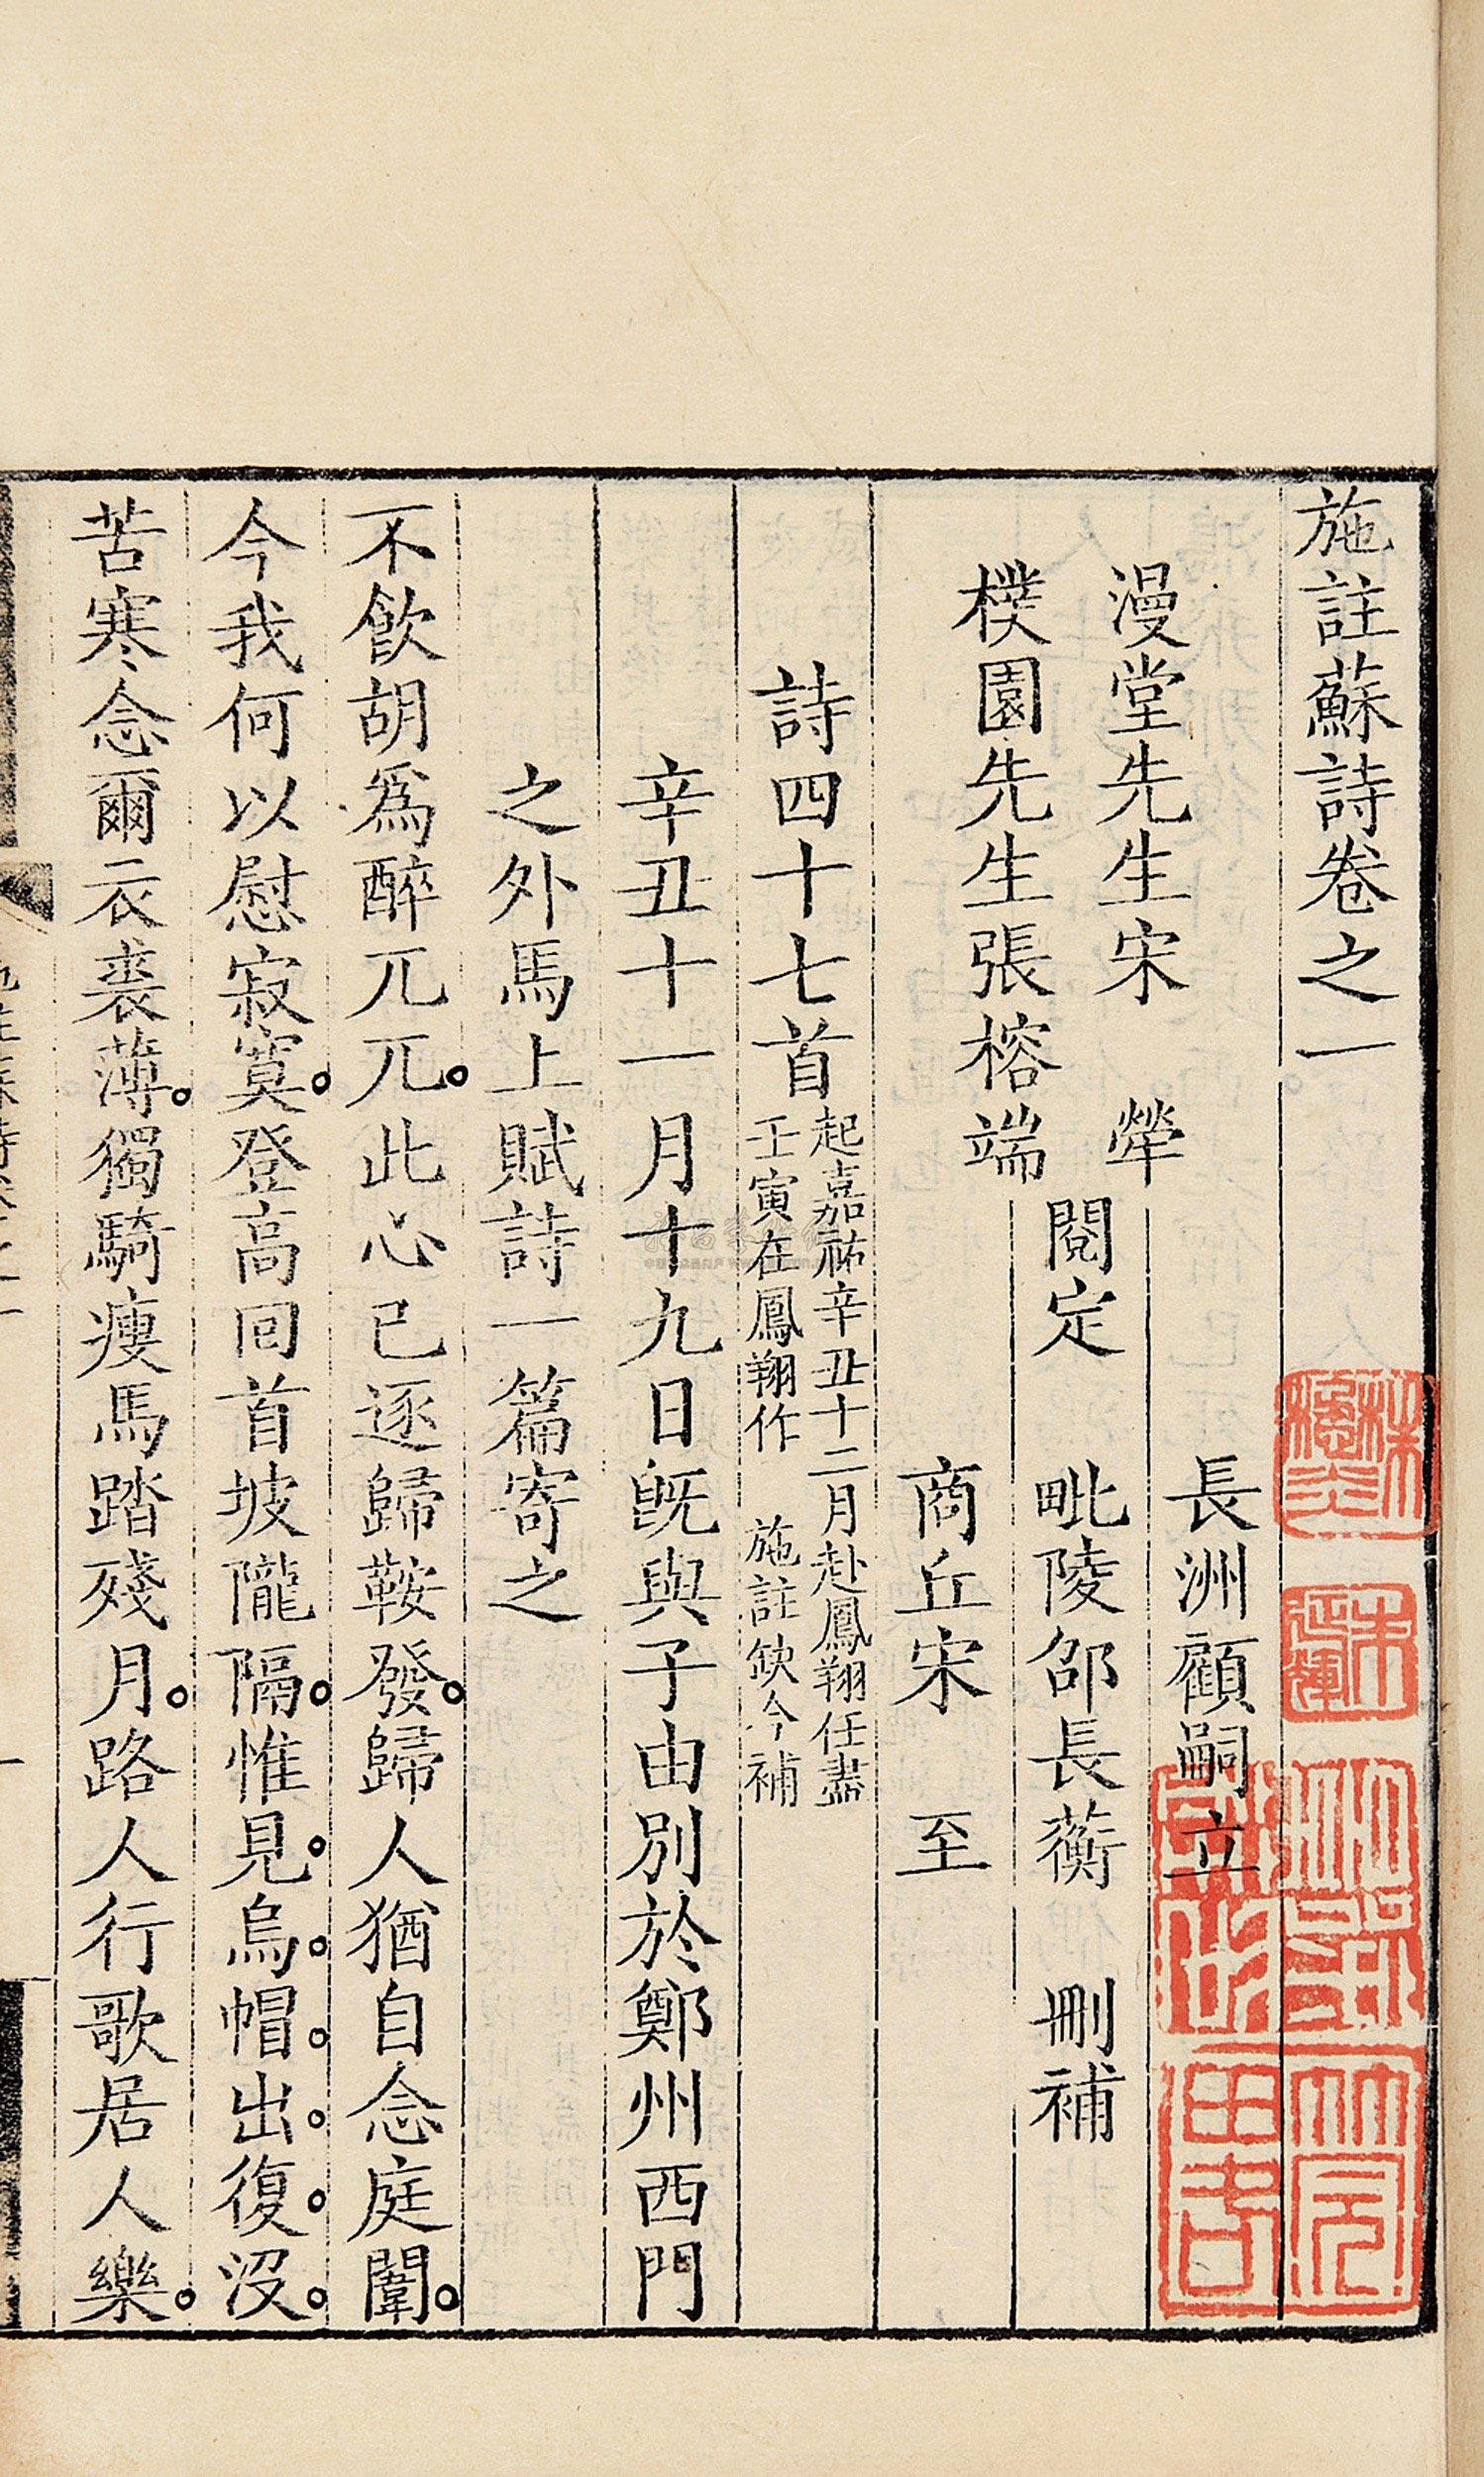 施註蘇詩卷之一
漫堂先生宋犖
樸園先生張榕端
閱定
長洲顧嗣立
毗陵邵長蘅
商丘宋至
刪補
詩四十七首
起嘉祐辛丑十二月赴鳳翔任盡
壬寅在鳳翔作 施註缺今補
辛丑十一月十九日旣與子由別於鄭州西門
之外馬上賦詩一篇寄之
不飮胡爲醉兀兀此心已逐歸鞍發歸人猶自念庭闈
今我何以慰寂寞登高回首坡隴隔惟見烏帽出復沒
苦寒念爾衣裘薄獨騎瘦馬踏殘月路人行歌居人樂